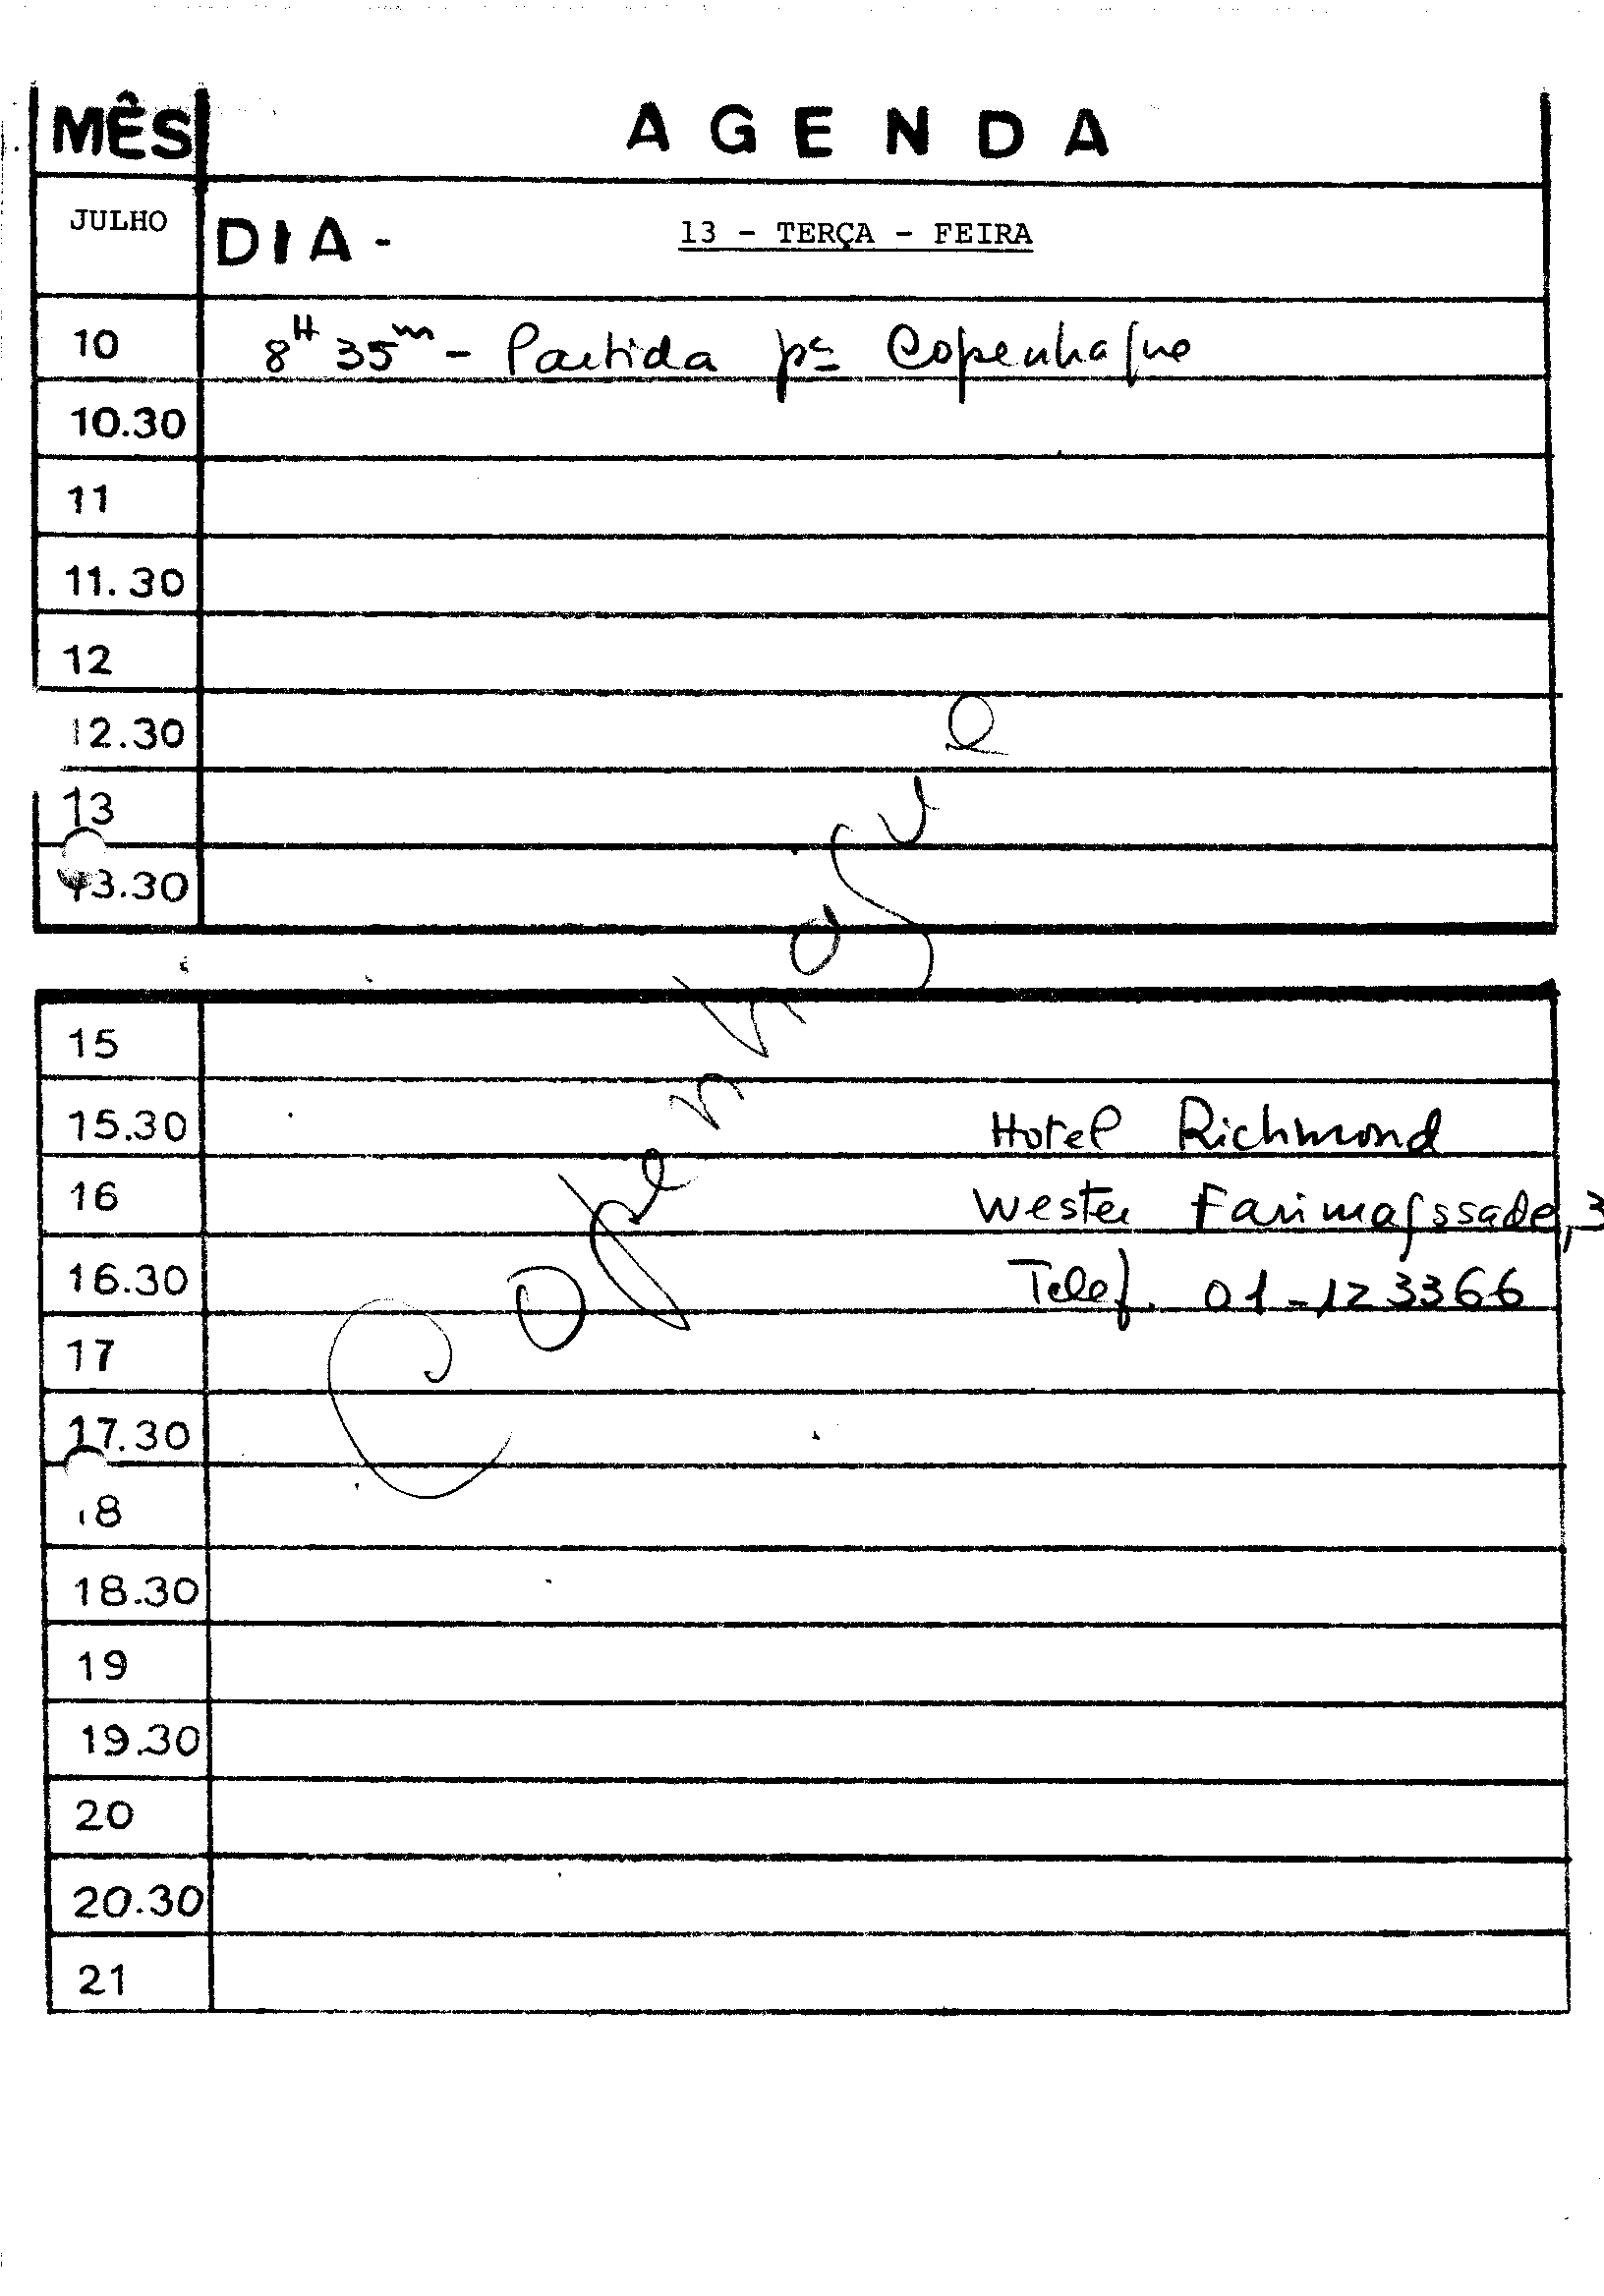 MÊS AGENDA
JULHO DIA - 13 - TERÇA - FEIRA
10 8H 35m - Partida pª Copenhague
10.30
11
11.30
12
12.30
13
13.30
Copenhague
15
15.30 Hotel Richmond
16 Wester Farimagssade, 3
16.30 Telef. 01-123366
17
17.30
18
18.30
19
19.30
20
20.30
21